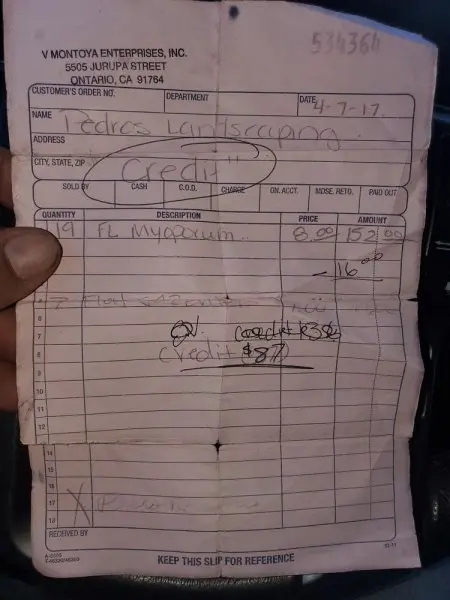 534364
V MONTOYA ENTERPRISES, INC.
5505 JURUPA STREET
ONTARIO, CA 91764
CUSTOMER'S ORDER NO. DEPARTMENT DATE 4-7-17
NAME Pedros Landscaping
ADDRESS
CITY, STATE, ZIP Credit"
SOLD BY CASH C.O.D. CHARGE ON. ACCT. MDSE. RETD. PAID OUT
QUANTITY DESCRIPTION PRICE AMOUNT
19 FL Myoporum 8.00 152.00
- 16.00
6
7
8 Credit $87
9
10
11
12
14
15
16
17 X
18
RECEIVED BY
KEEP THIS SLIP FOR REFERENCE